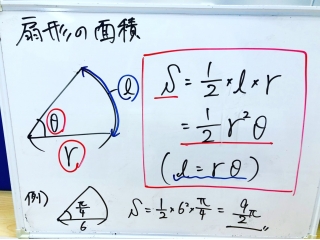 扇形の面積
θ
r
l
S = 1/2 × l × r
= 1/2 r²θ
(l = rθ)
例)
π/4
6
S = 1/2 × 6² × π/4 = 9/2 π